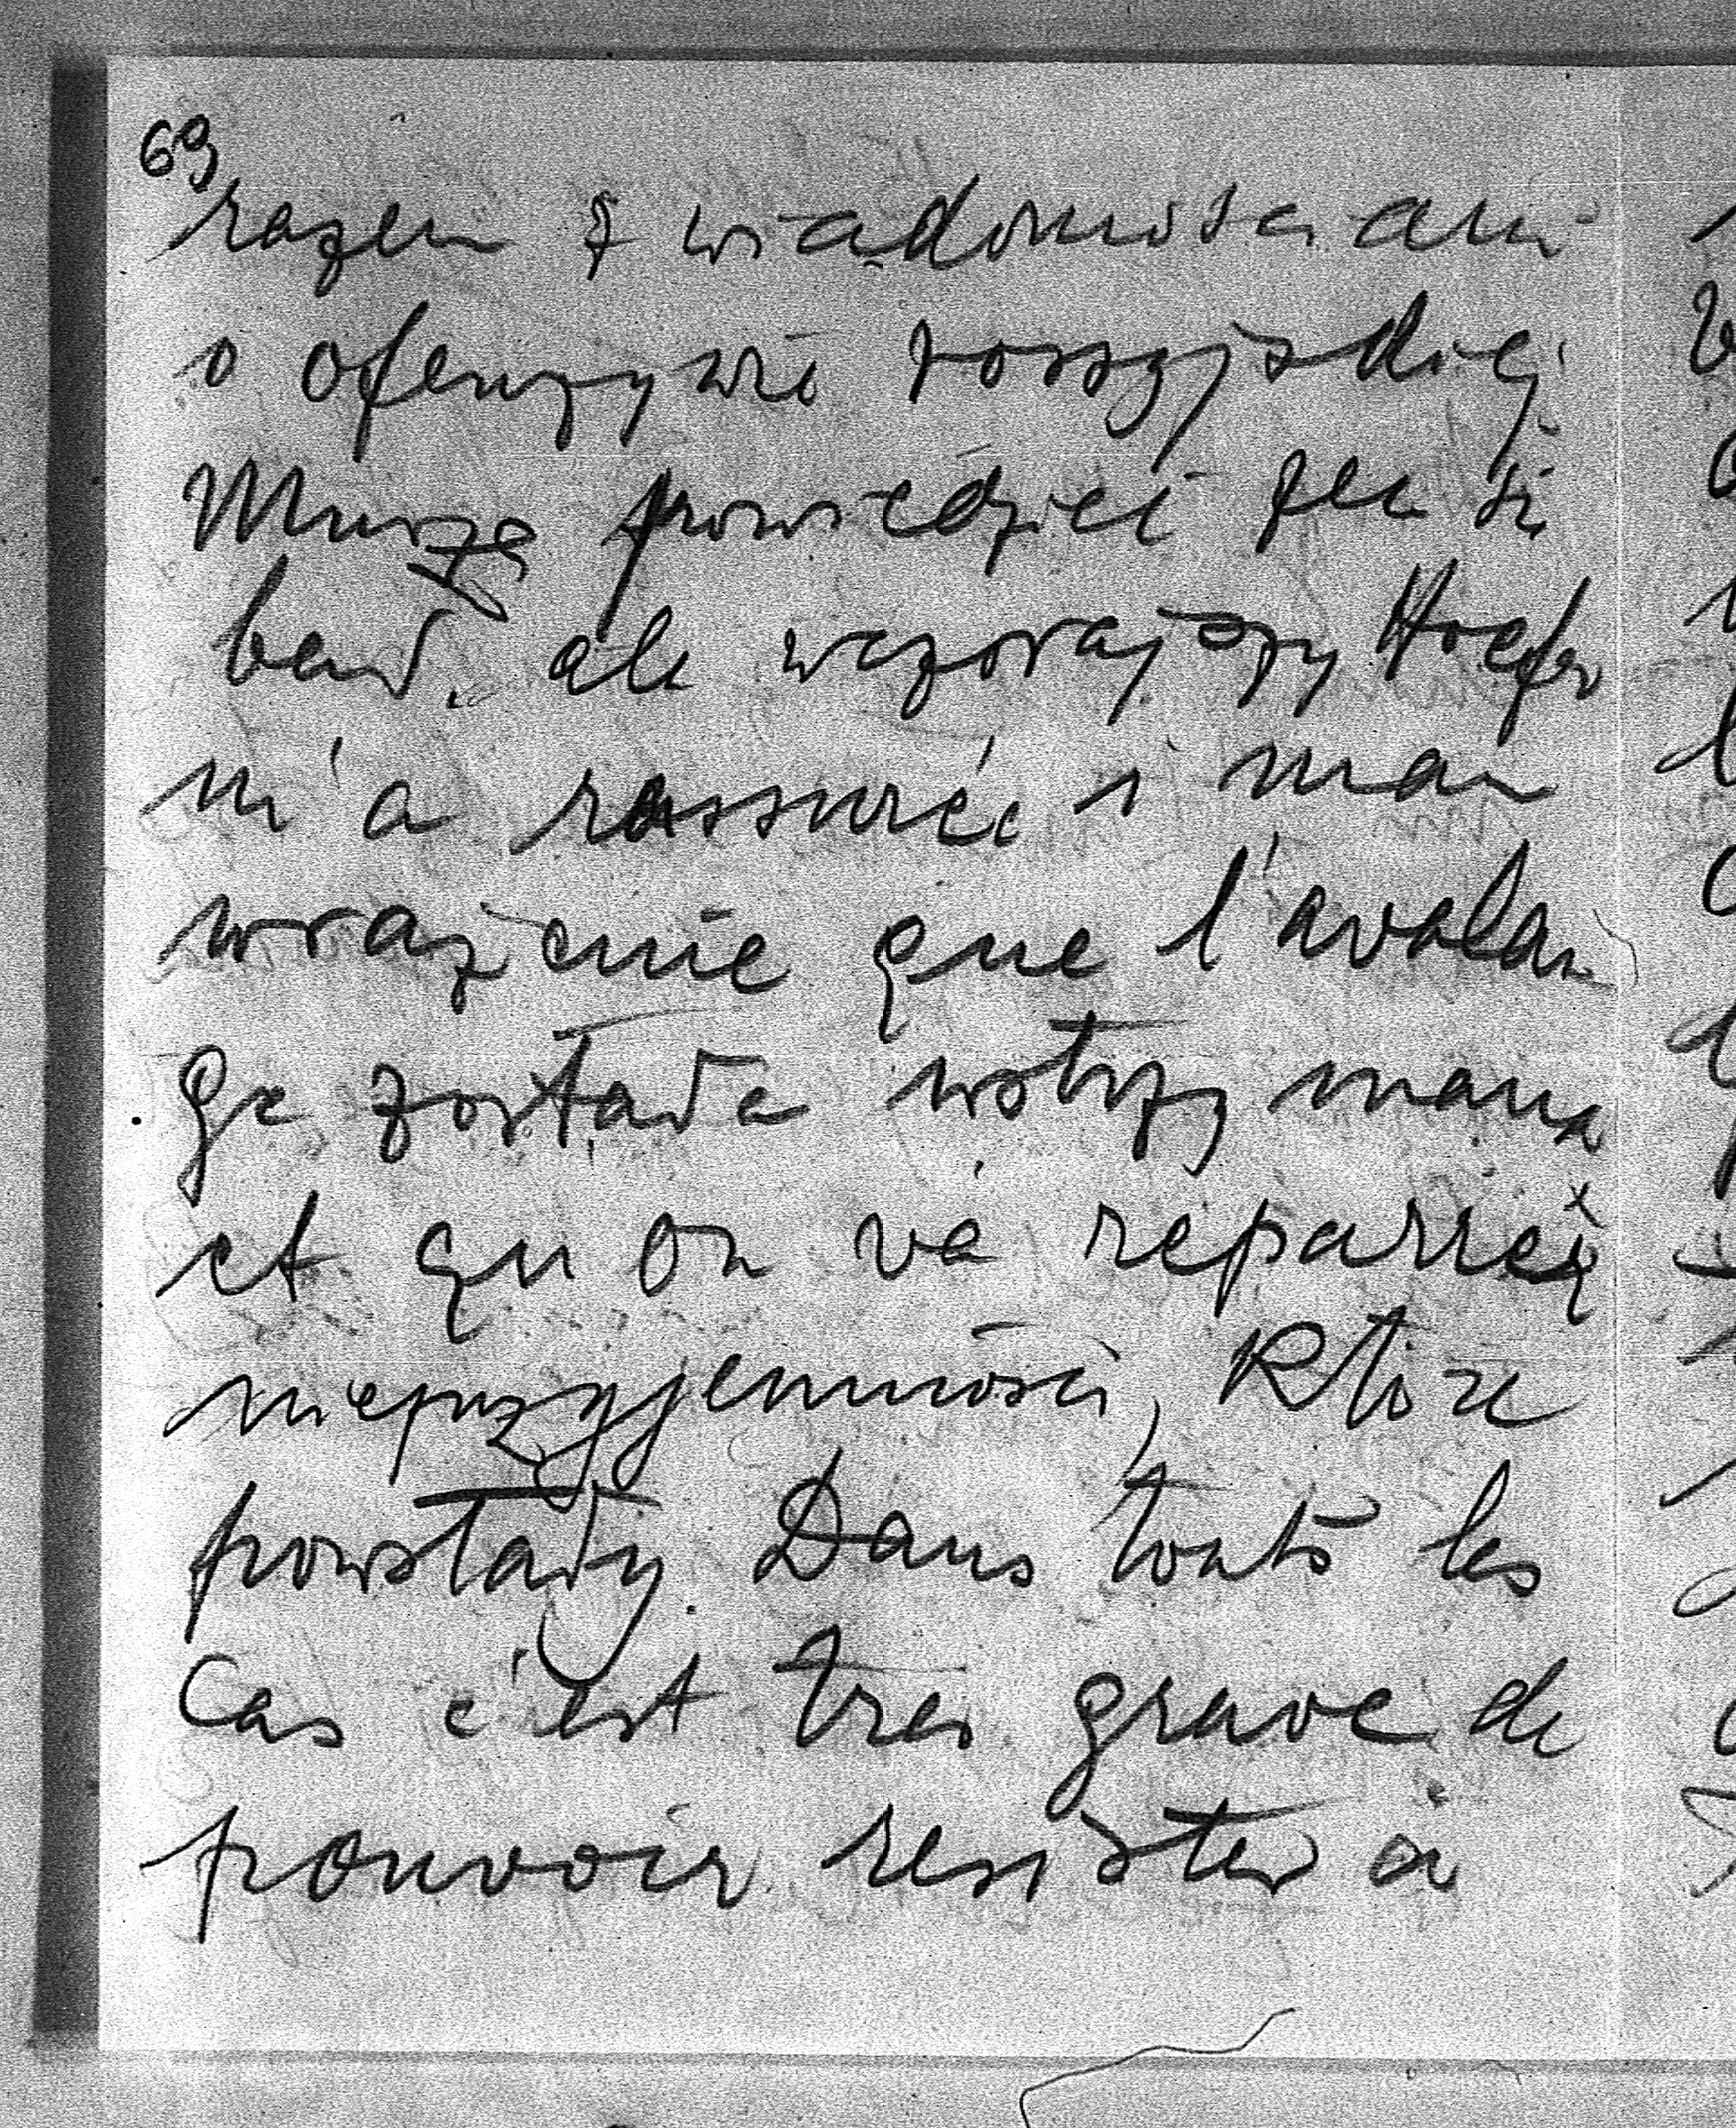 69
razem z wiadomościami
o ofenzywie rossyjskiej
Muszę powiedzieć żem się
bał. ale wczorajszy Hoefer
m'a rassurée i mam
wrażenie que l'avalan
ge została wstrzymana
et qu'on va reparrer
nieprzyjemności, które
powstały. Dans touts les
Cas c'est tres grave de
pouvoir resister à